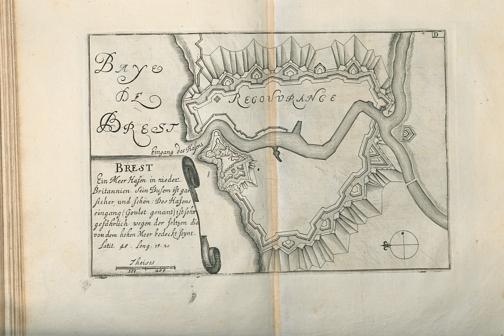 D
BAYE
DE
BREST
REGOUVRANGE
Eingang des Hafens
BREST
Ein Meer Hafen in nieder
Britannien Sein Busem ist gar
sicher und schön. Des Hafens
eingang (Goulet genant) ist sehr
gefährlich wegen der felsen die
von dem hohen Meer bedeckt seynt.
Latit. 48. Long.
Thoises